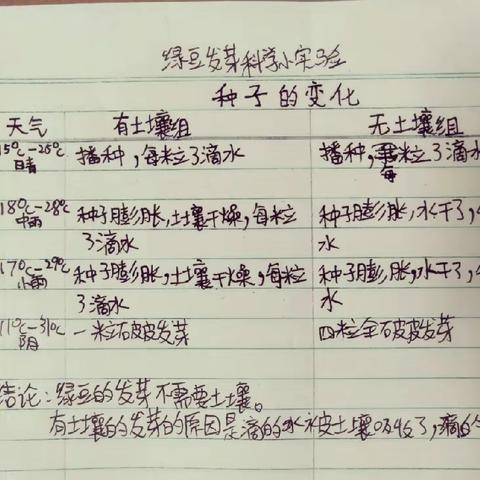 绿豆发芽科学小实验
种子的变化
天气 有土壤组 无土壤组
15℃-25℃ 播种,每粒3滴水 播种,每粒3滴水
日晴
18℃-28℃ 种子膨胀,土壤干燥,每粒 种子膨胀,水干了,
中雨 3滴水 水
17℃-29℃ 种子膨胀,土壤干燥,每粒 种子膨胀,水干了,
小雨 3滴水 水
11℃-31℃ 一粒破皮发芽 四粒全破皮发芽
阴
结论:绿豆的发芽不需要土壤。
有土壤的发芽的原因是滴的水被土壤吸收了,滴的